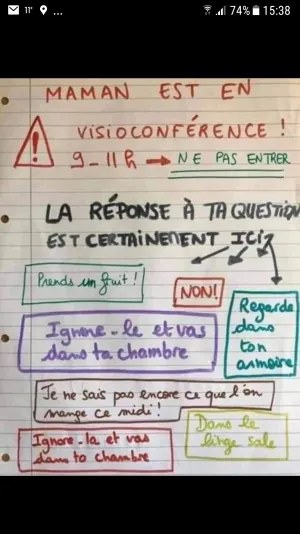 11° ... 74% 15:38
MAMAN EST EN
VISIOCONFÉRENCE !
9-11h → NE PAS ENTRER
LA RÉPONSE À TA QUESTION
EST CERTAINEMENT ICI
Prends un fruit !
NON!
Regarde
dans
ton
armoire
Ignore-le et vas
dans ta chambre
Je ne sais pas encore ce que l'on
mange ce midi !
Dans le
linge sale
Ignore-la et vas
dans ta chambre